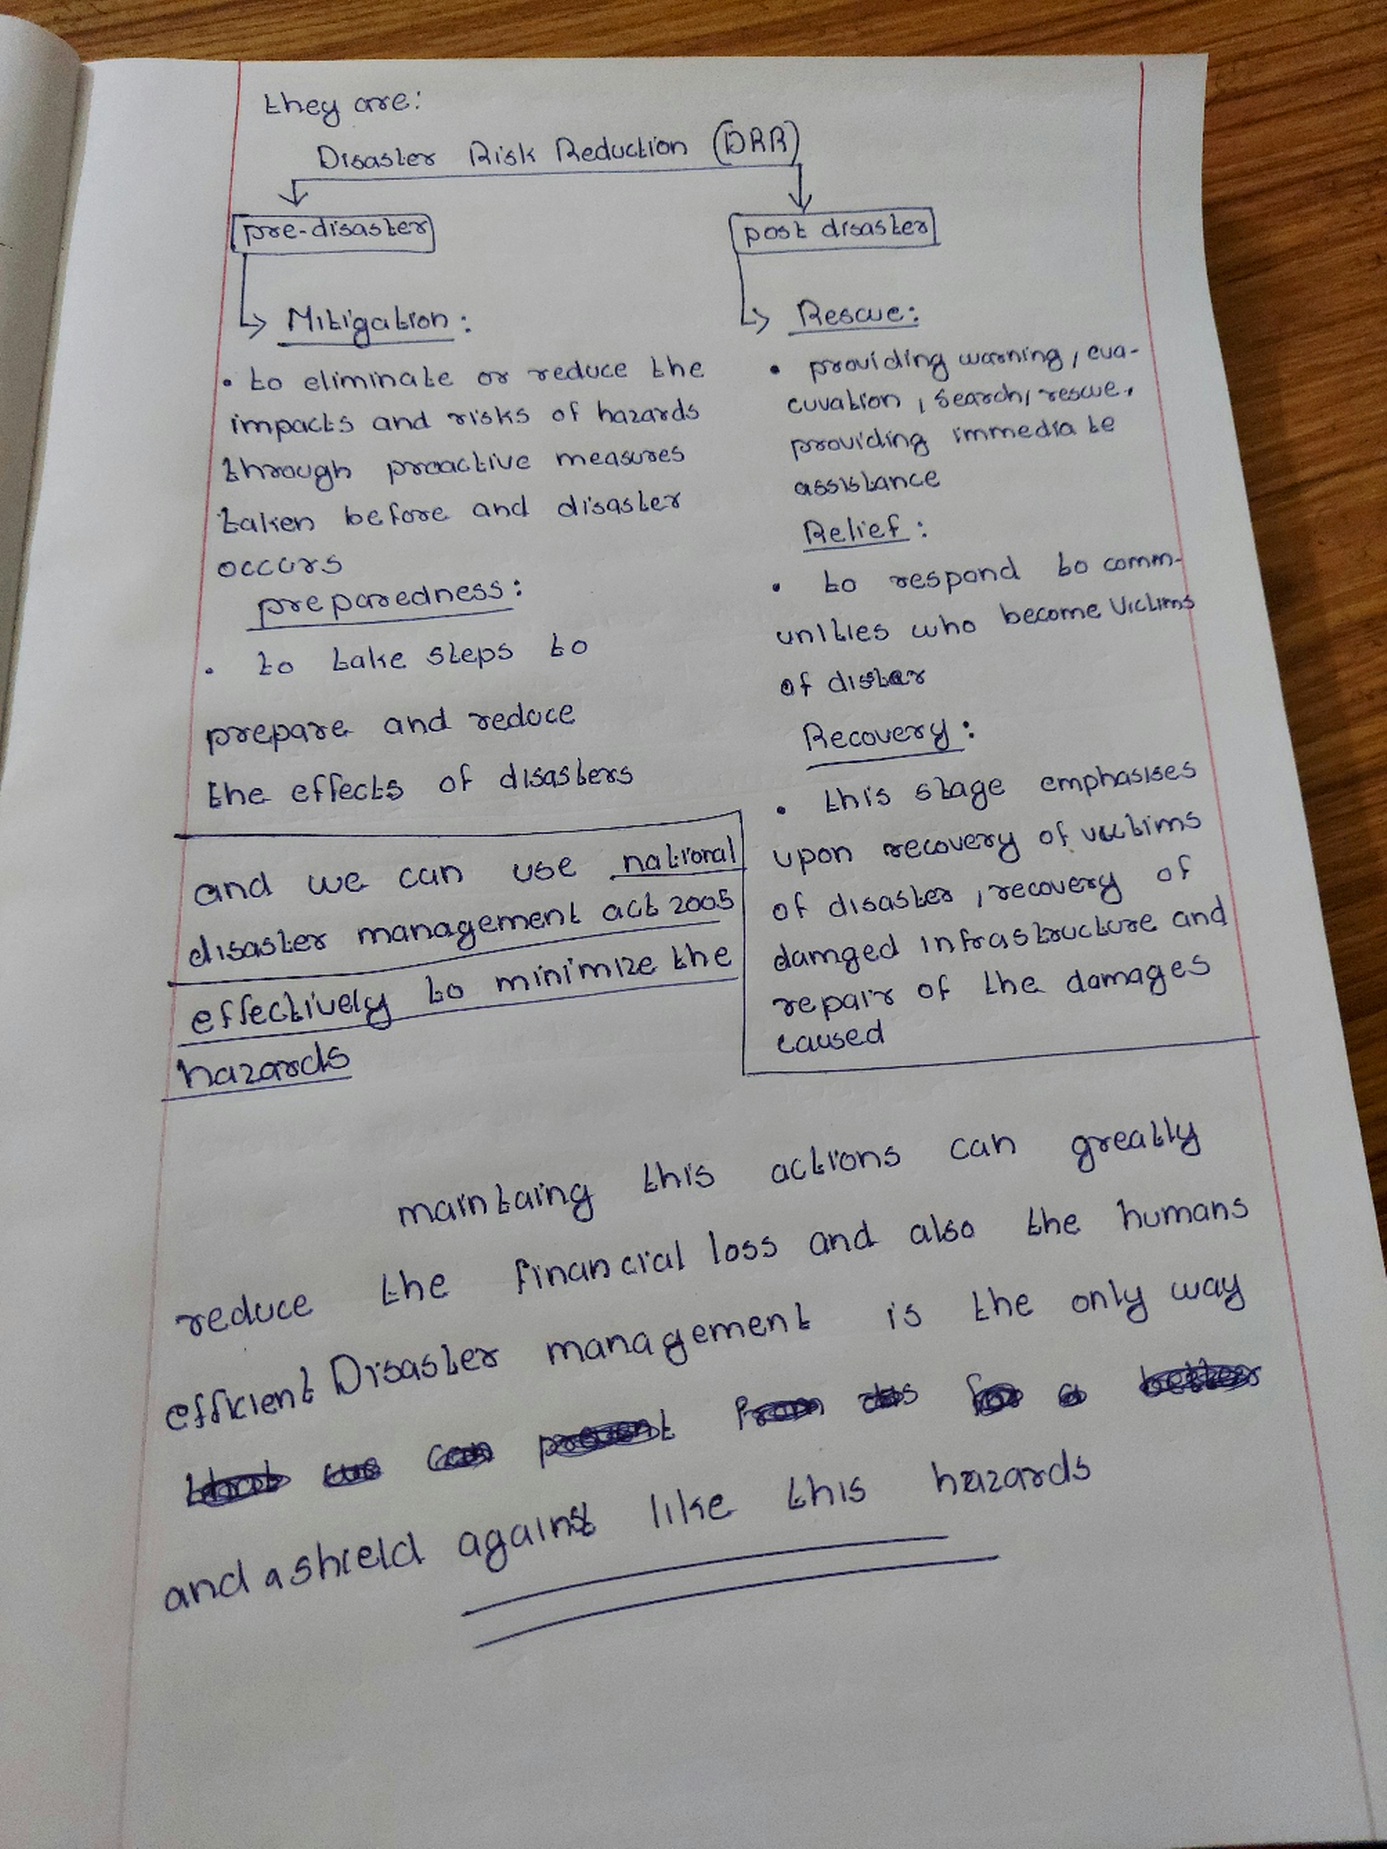 they are:
Disaster Risk Reduction (DRR)
pre-disaster
Mitigation:
• to eliminate or reduce the
impacts and risks of hazards
through proactive measures
taken before and disaster
occurs
preparedness:
• to take steps to
prepare and reduce
the effects of disasters
and we can use national
disaster management act 2005
effectively to minimize the
hazards
post disaster
Rescue:
• providing warning, eva-
cuvation, search, rescue,
providing immediate
assistance
Relief:
• to respond to comm-
unities who become victims
of dister
Recovery:
• this stage emphasises
upon recovery of victims
of disaster, recovery of
damged infrastructure and
repair of the damages
caused
maintaing this actions can greatly
reduce the financial loss and also the humans
efficient Disaster management is the only way
and a shield against like this hazards